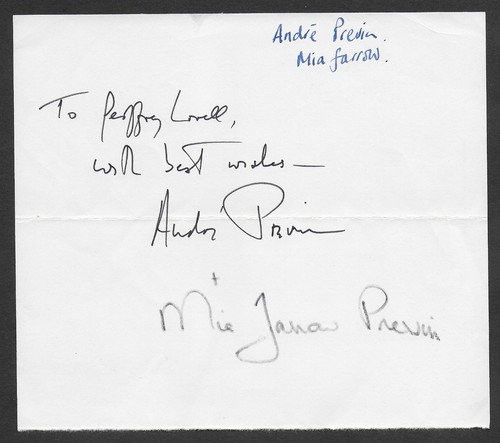 André Previn.
Mia Farrow.
To Geoffrey Lovell,
with best wishes —
André Previn
+
Mia Farrow Previn